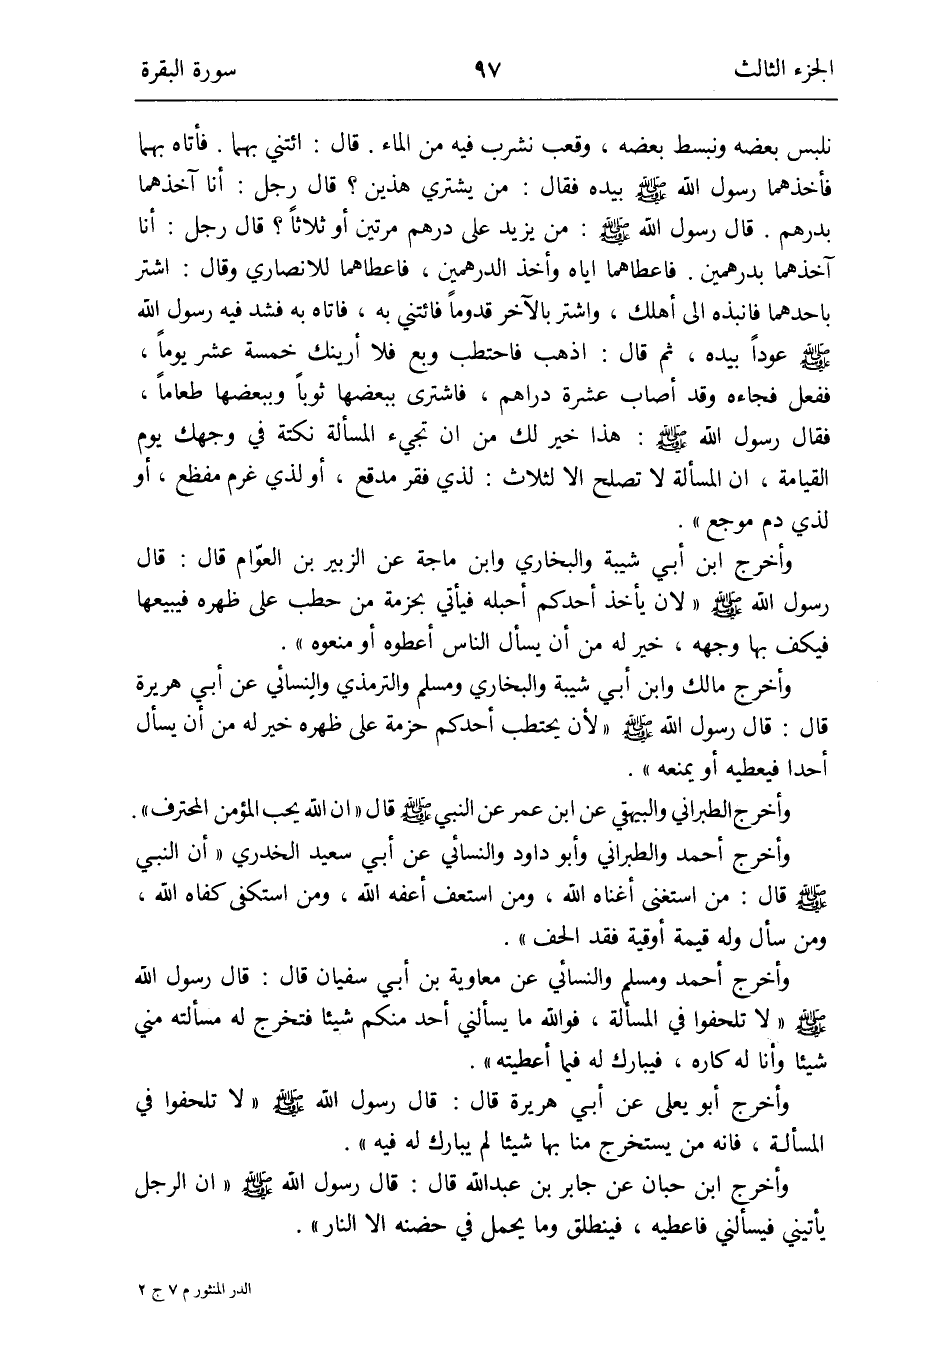 الجزء الثالث ٩٧ سورة البقرة
نلبس بعضه ونبسط بعضه ، وقعب نشرب فيه من الماء . قال : ائتني بهما . فأتاه بهما
فأخذهما رسول الله ﷺ بيده فقال : من يشتري هذين ؟ قال رجل : أنا آخذهما
بدرهم . قال رسول الله ﷺ : من يزيد على درهم مرتين أو ثلاثاً ؟ قال رجل : أنا
آخذهما بدرهمين . فاعطاهما اياه وأخذ الدرهمين ، فاعطاهما للانصاري وقال : اشتر
باحدهما فانبذه الى أهلك ، واشتر بالآخر قدوماً فائتني به ، فاتاه به فشد فيه رسول الله
ﷺ عوداً بيده ، ثم قال : اذهب فاحتطب وبع فلا أرينك خمسة عشر يوماً ،
ففعل فجاءه وقد أصاب عشرة دراهم ، فاشترى ببعضها ثوباً وببعضها طعاماً ،
فقال رسول الله ﷺ : هذا خير لك من ان تجيء المسألة نكتة في وجهك يوم
القيامة ، ان المسألة لا تصلح الا لثلاث : لذي فقر مدقع ، أو لذي غرم مفظع ، أو
لذي دم موجع » .
وأخرج ابن أبي شيبة والبخاري وابن ماجة عن الزبير بن العوّام قال : قال
رسول الله ﷺ « لان يأخذ أحدكم أحبله فيأتي بحزمة من حطب على ظهره فيبيعها
فيكف بها وجهه ، خير له من أن يسأل الناس أعطوه أو منعوه » .
وأخرج مالك وابن أبي شيبة والبخاري ومسلم والترمذي والنسائي عن أبي هريرة
قال : قال رسول الله ﷺ « لأن يحتطب أحدكم حزمة على ظهره خير له من أن يسأل
أحدا فيعطيه أو يمنعه » .
وأخرج الطبراني والبيهقي عن ابن عمر عن النبي ﷺ قال « ان الله يحب المؤمن المحترف » .
وأخرج أحمد والطبراني وأبو داود والنسائي عن أبي سعيد الخدري « أن النبي
ﷺ قال : من استغنى أغناه الله ، ومن استعف أعفه الله ، ومن استكفى كفاه الله ،
ومن سأل وله قيمة أوقية فقد الحف » .
وأخرج أحمد ومسلم والنسائي عن معاوية بن أبي سفيان قال : قال رسول الله
ﷺ « لا تلحفوا في المسألة ، فوالله ما يسألني أحد منكم شيئا فتخرج له مسألته مني
شيئا وأنا له كاره ، فيبارك له فيما أعطيته » .
وأخرج أبو يعلى عن أبي هريرة قال : قال رسول الله ﷺ « لا تلحفوا في
المسألة ، فانه من يستخرج منا بها شيئا لم يبارك له فيه » .
وأخرج ابن حبان عن جابر بن عبدالله قال : قال رسول الله ﷺ « ان الرجل
يأتيني فيسألني فاعطيه ، فينطلق وما يحمل في حضنه الا النار » .
الدر المنثور م ٧ ج ٢